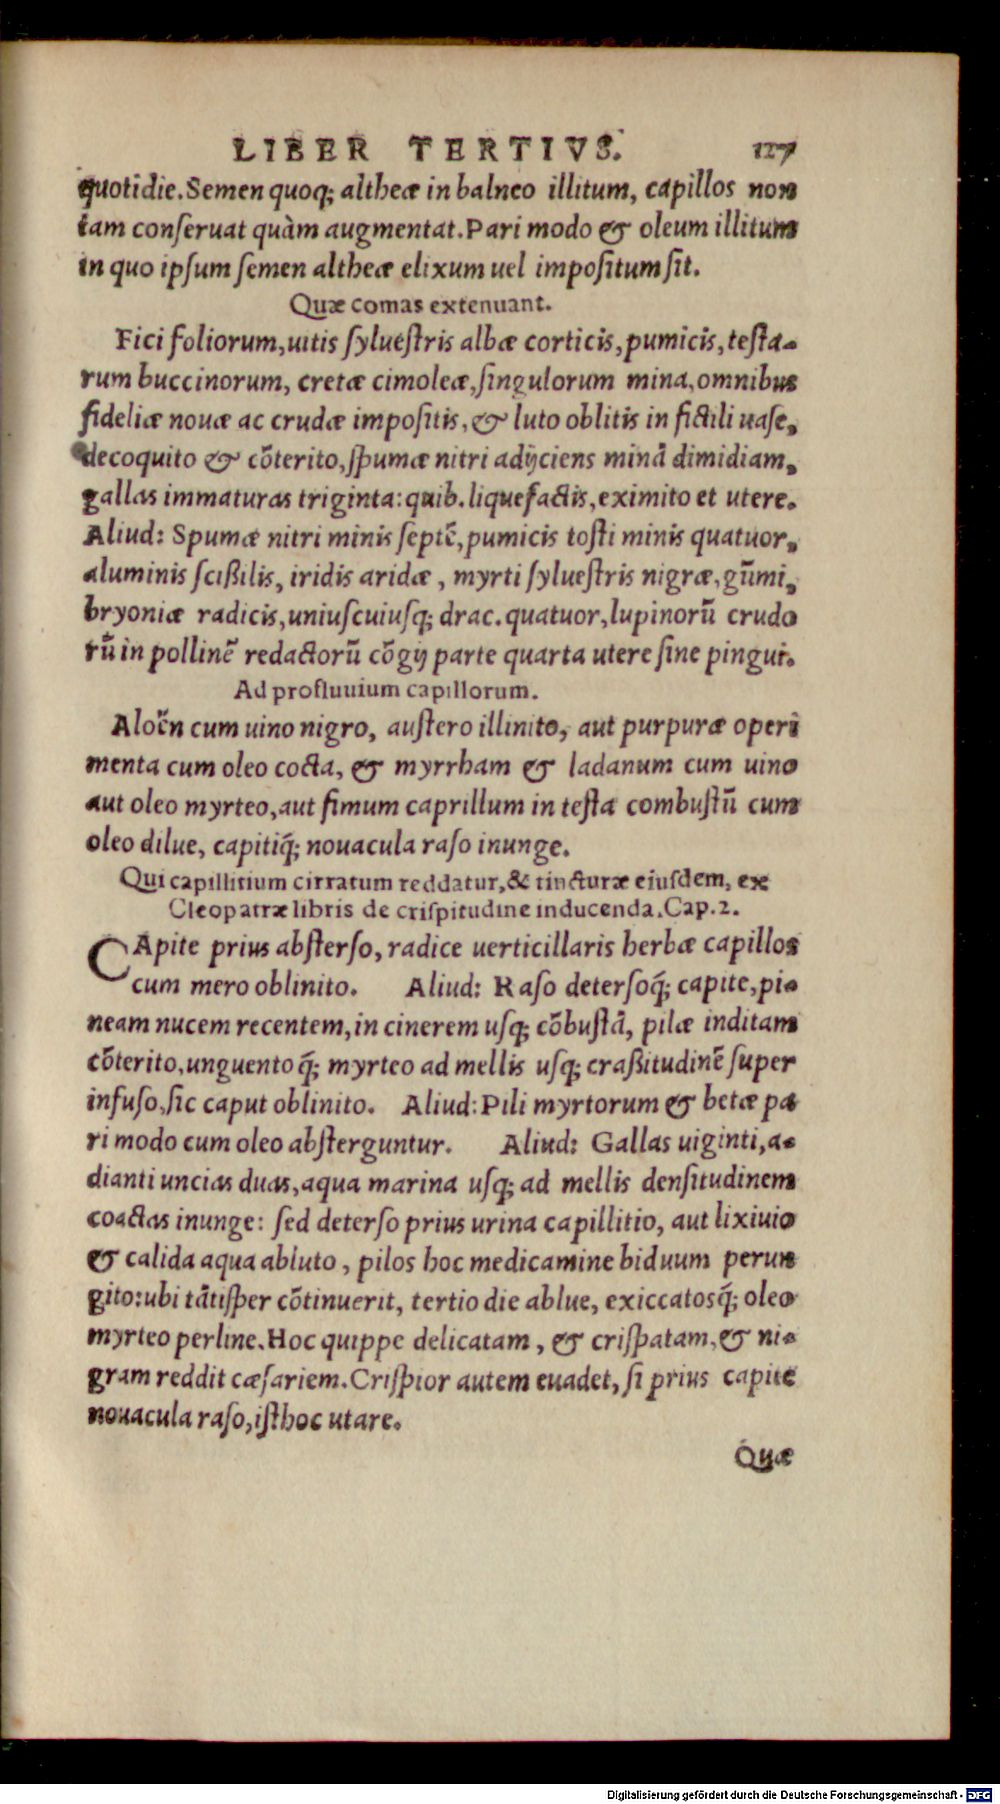 LIBER TERTIVS. 127
quotidie. Semen quoq; altheæ in balneo illitum, capillos non
tam conseruat quàm augmentat. Pari modo & oleum illitum
in quo ipsum semen altheæ elixum uel impositum sit.
Quæ comas extenuant.
Fici foliorum, uitis syluestris albæ corticis, pumicis, testa-
rum buccinorum, cretæ cimoleæ, singulorum mina, omnibus
fideliæ nouæ ac crudæ impositis, & luto oblitis in fictili uase,
decoquito & cõterito, spumæ nitri adijciens minã dimidiam,
gallas immaturas triginta: quib. liquefactis, eximito et utere.
Aliud: Spumæ nitri minis septẽ, pumicis tosti minis quatuor,
aluminis scißilis, iridis aridæ, myrti syluestris nigræ, gũmi,
bryoniæ radicis, uniuscuiusq; drac. quatuor, lupinorũ crudo
rũ in pollinẽ redactorũ cõgij parte quarta utere sine pingui.
Ad profluuium capillorum.
Aloẽn cum uino nigro, austero illinito, aut purpuræ operi
menta cum oleo cocta, & myrrham & ladanum cum uino
aut oleo myrteo, aut fimum caprillum in testa combustũ cum
oleo dilue, capitiq́; nouacula raso inunge.
Qui capillitium cirratum reddatur, & tincturæ eiusdem, ex
Cleopatræ libris de crispitudine inducenda. Cap. 2.
CApite prius absterso, radice uerticillaris herbæ capillos
cum mero oblinito. Aliud: Raso detersoq́; capite, pi-
neam nucem recentem, in cinerem usq; cõbustã, pilæ inditam
cõterito, unguento q́; myrteo ad mellis usq; craßitudinẽ super
infuso, sic caput oblinito. Aliud: Pili myrtorum & betæ pa
ri modo cum oleo absterguntur. Aliud: Gallas uiginti, a-
dianti uncias duas, aqua marina usq; ad mellis densitudinem
coactas inunge: sed deterso prius urina capillitio, aut lixiuio
& calida aqua abluto, pilos hoc medicamine biduum perun
gito: ubi tãtisper cõtinuerit, tertio die ablue, exiccatosq́; oleo
myrteo perline. Hoc quippe delicatam, & crispatam, & ni-
gram reddit cæsariem. Crispior autem euadet, si prius capite
nouacula raso, isthoc utare.
Quæ
Digitalisierung gefördert durch die Deutsche Forschungsgemeinschaft - DFG